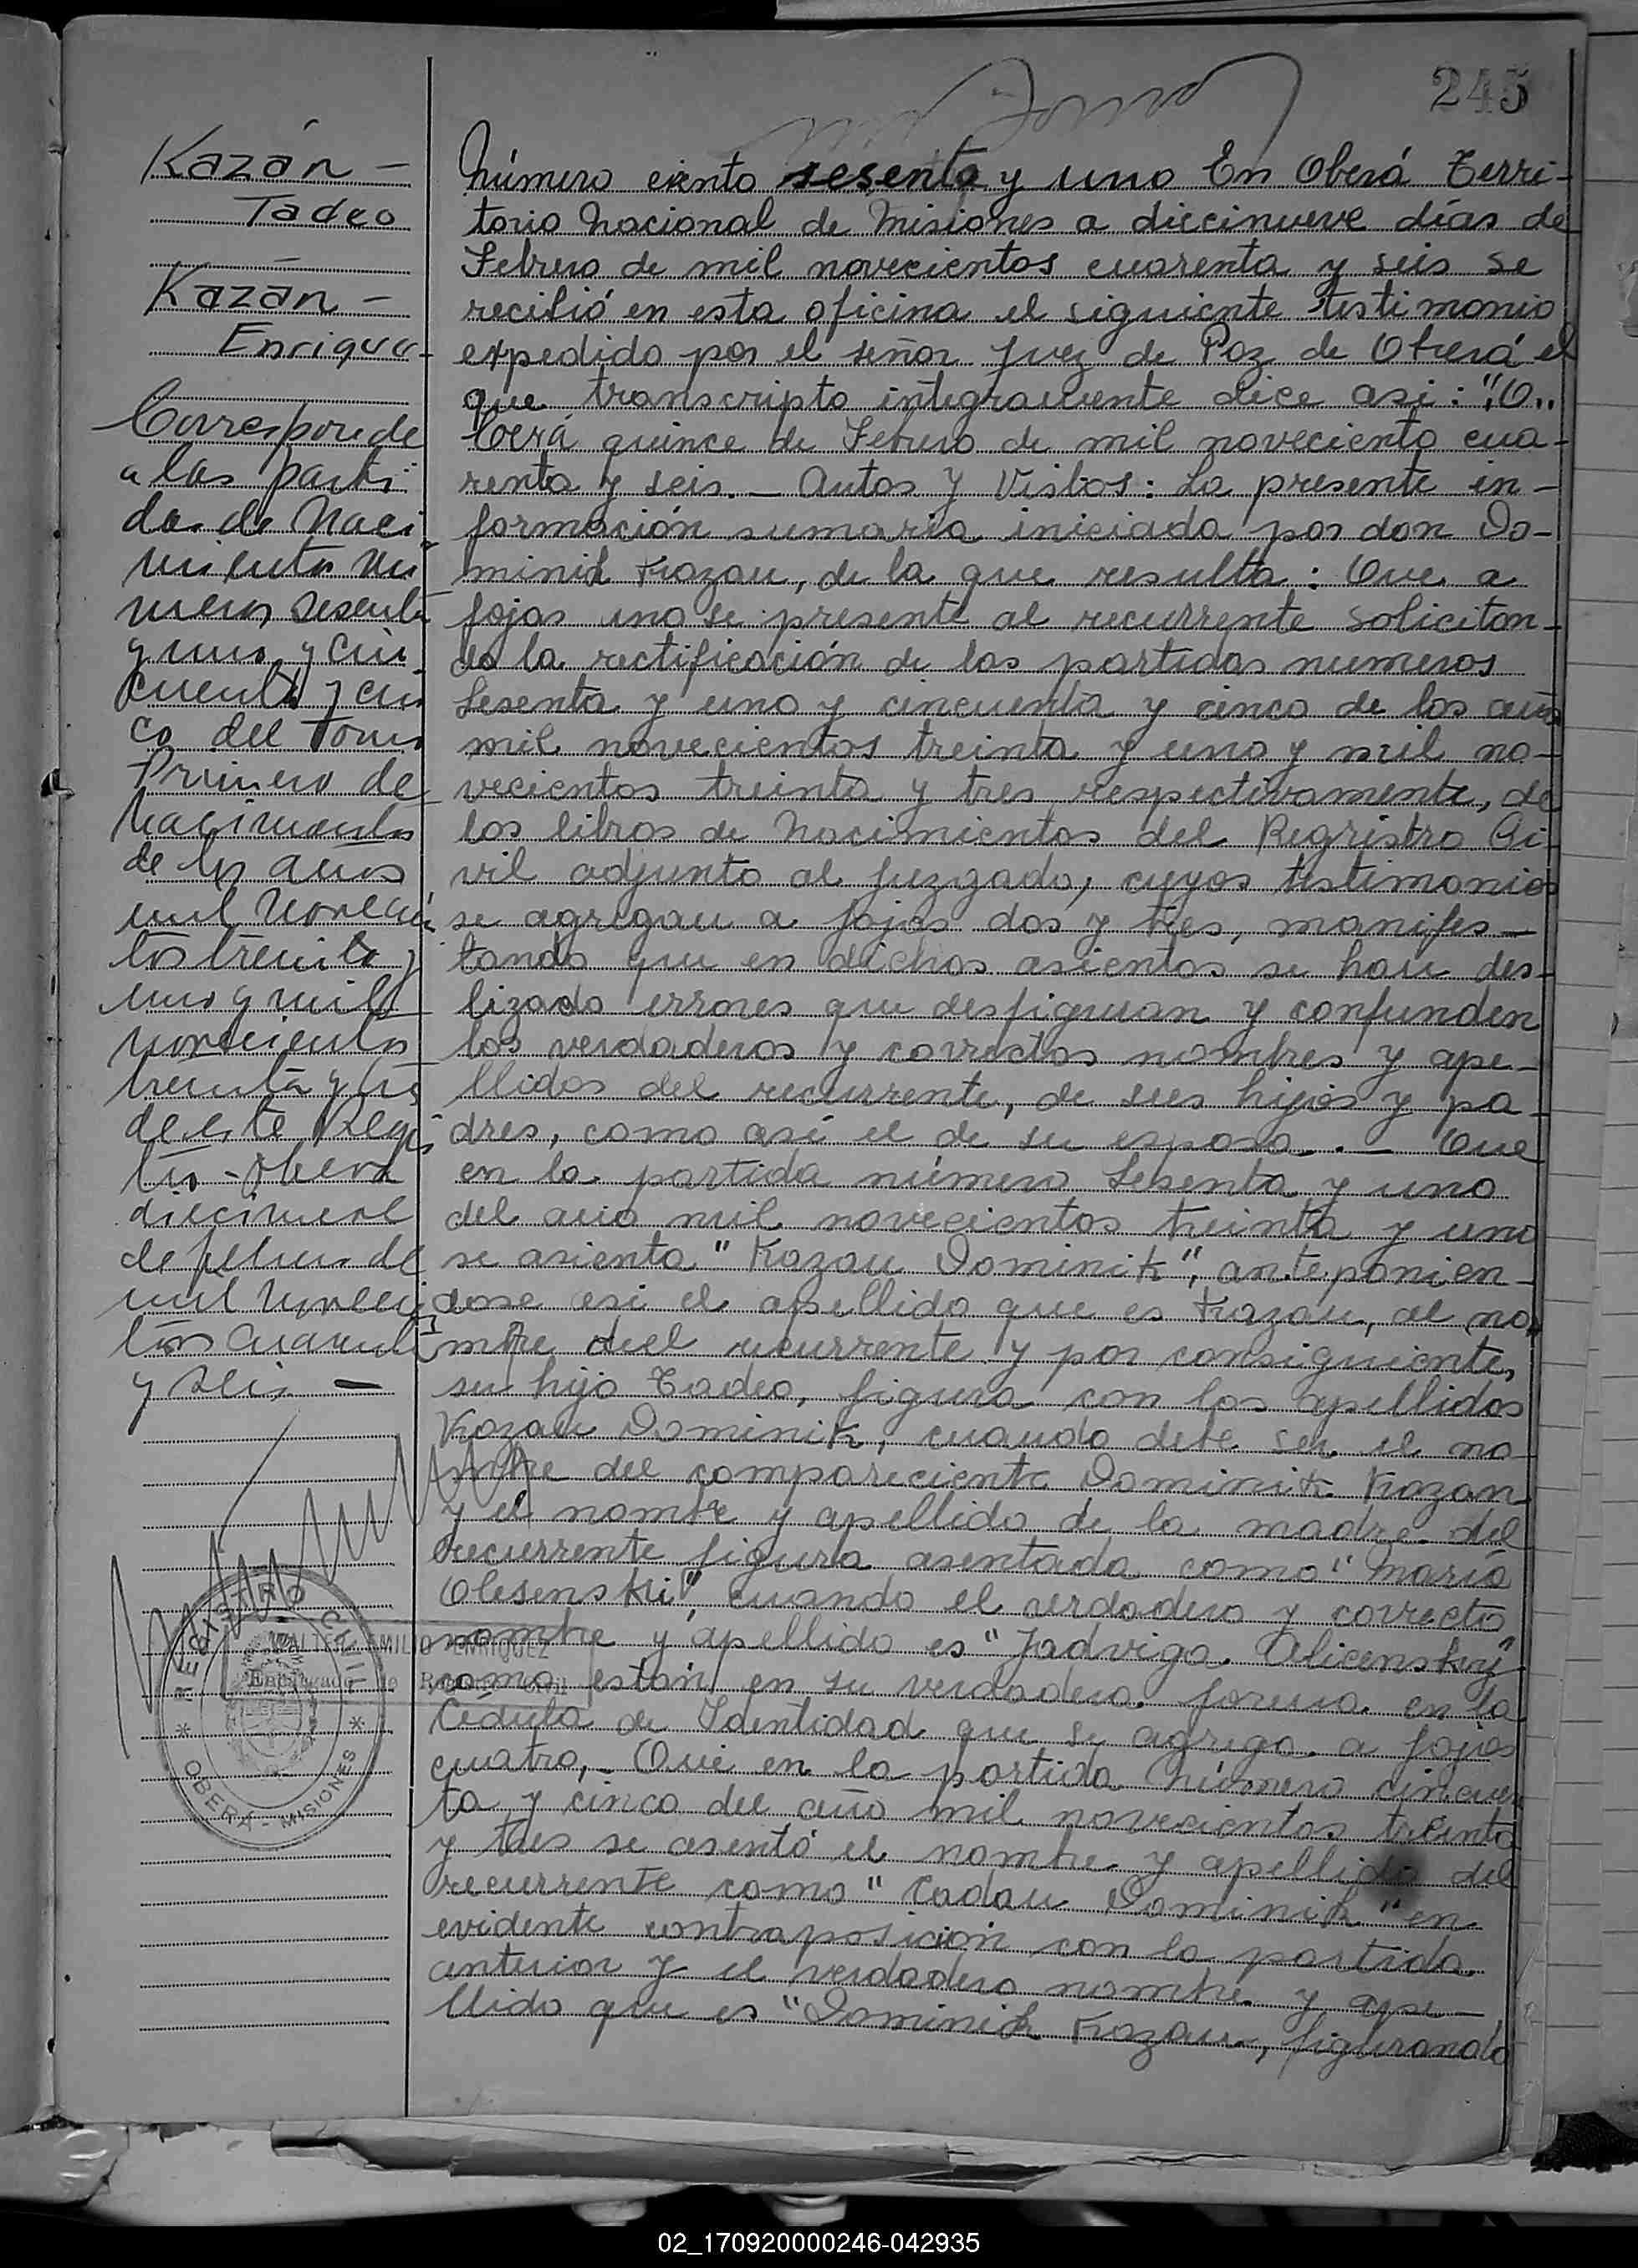 245
Kazán -
Tadeo
Kazán -
Enrique -
Corresponde
a las parti
das de Naci
miento nú
mero sesenta
y uno y cin
cuenta y cin
co del Tomo
Primero de
Nacimientos
de los años
mil novecien
tos treinta y
uno y mil
novecientos
treinta y tres
de este Regis
tro - Oberá
diecinueve
de febrero de
mil novecien
tos cuarenta
y seis —
Número ciento sesenta y uno En Oberá Terri-
torio Nacional de Misiones a diecinueve días de
Febrero de mil novecientos cuarenta y seis se
recibió en esta oficina el siguiente testimonio
expedido por el señor Juez de Paz de Oberá el
que transcripto integramente dice asi: "O..
berá quince de Febrero de mil noveciento cua-
renta y seis. — Autos y Vistos: La presente in-
formación sumaria iniciada por don Do-
minik Kazan, de la que resulta: Que a
fojas uno se presente al recurrente solicitan-
do la rectificación de las partidas numeros
Sesenta y uno y cincuenta y cinco de los años
mil novecientos treinta y uno y mil no-
vecientos treinta y tres respectivamente, de
los libros de Nacimientos del Regristro Ci-
vil adjunto al Juzgado, cuyos testimonios
se agregan a fojas dos y tres, manifes-
tando que en dichos asientos se han des-
lizado errores que desfiguran y confunden
los verdaderos y correctos nombres y ape-
llidos del recurrente, de sus hijos y pa-
dres, como asi el de su esposa. — Que
en la partida número Sesenta y uno
del año mil novecientos treinta y uno
se asienta "Kazan Dominik", anteponien-
dose asi el apellido que es Kazan, al no-
mbre del recurrente y por consiguiente,
su hijo Tadeo, figura con los apellidos
Kazan Dominik, cuando debe ser el no-
mbre del compareciente Dominik Kazan
y el nombre y apellido de la madre del
recurrente figura asentada como "Maria
Olesenski", cuando el verdadero y correcto
nombre y apellido es "Jadviga Olicensky"
como están en su verdadera forma en la
Cédula de Identidad que se agrega a fojas
cuatro,- Que en la partida número cincuen
ta y cinco del año mil novecientos treinta
y tres se asentó el nombre y apellido del
recurrente como "Cadau Dominik" en
evidente contraposición con la partida
anterior y el verdadero nombre y ape-
llido que es "Dominik Kazan, figurando
REGISTRO CIVIL
* OBERÁ - MISIONES *
WALTER EMILIO ENRIQUEZ
Encargado de Registro Civil
02_170920000246-042935